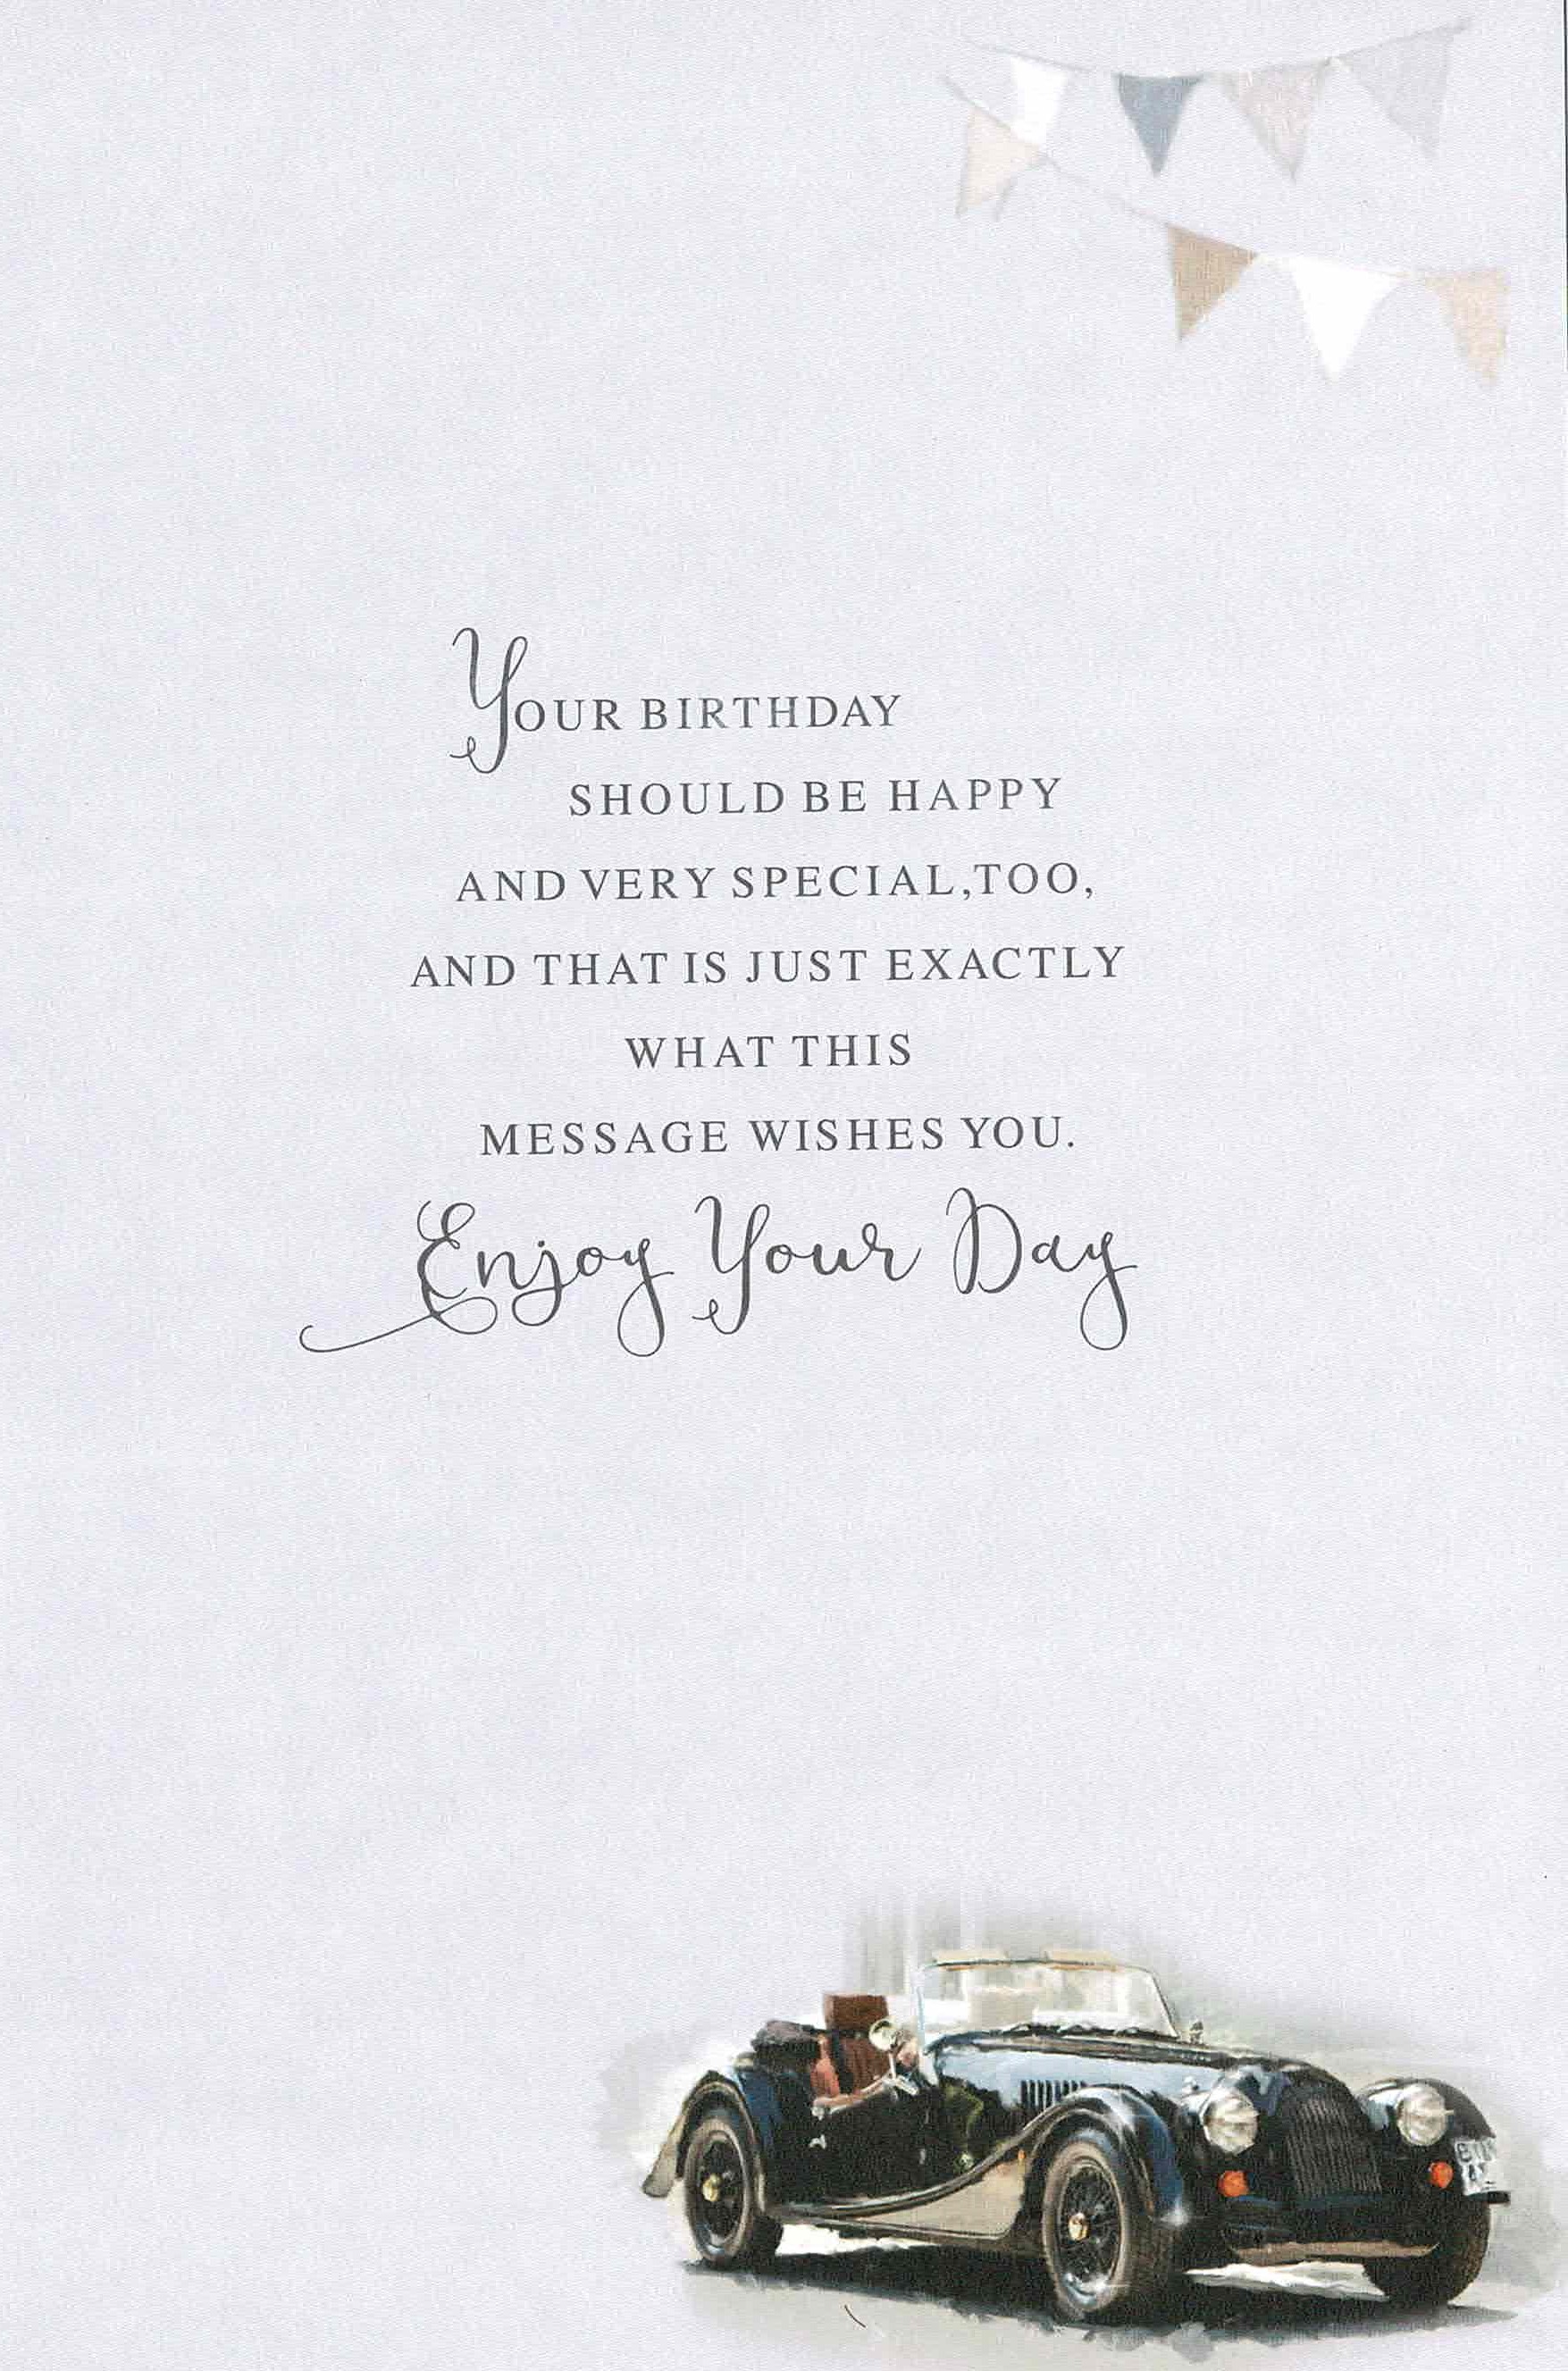 YOUR BIRTHDAY
SHOULD BE HAPPY
AND VERY SPECIAL,TOO,
AND THAT IS JUST EXACTLY
WHAT THIS
MESSAGE WISHES YOU.
Enjoy Your Day